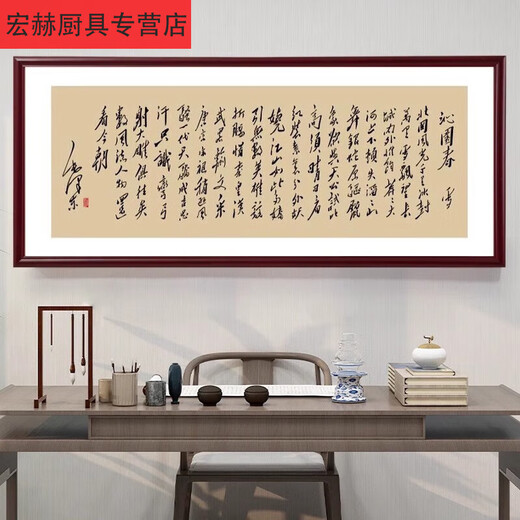 宏赫厨具专营店
沁園春 雪
北国风光千里冰封
万里雪飘望长
城内外惟餘莽莽大
河上下頓失滔滔山
舞银蛇原驰蜡
象欲與天公試比
高須晴日看
红装素裹分外妖
娆江山如此多娇
引無數英雄競
折腰惜秦皇漢
武略輸文采
唐宗宋祖稍遜風
騷一代天驕成吉思
汗只識彎弓
射大雕俱往矣
數風流人物還
看今朝
毛泽东